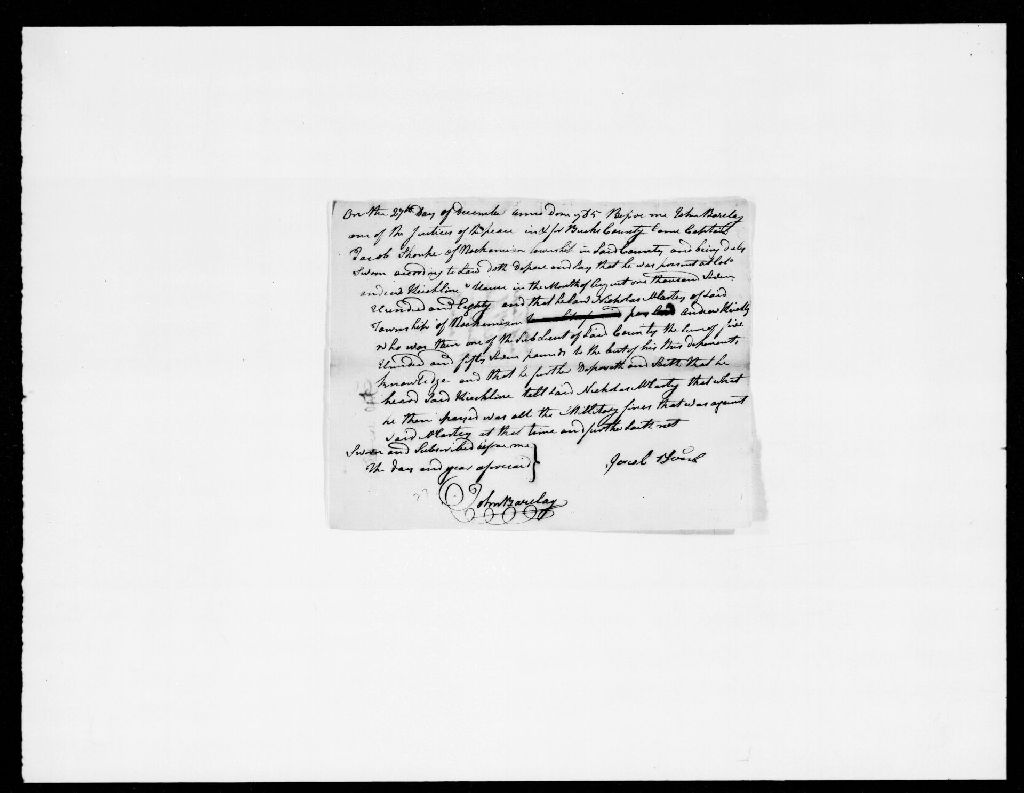 On the 27th Day of December anno dom 1785 Before me John Barclay
one of the Justices of the peace in & for Bucks County Came Captain
Jacob Shoupe of Nockamixon township in Said County and being duly
Sworn according to Law doth depose and Say that he was present at Col
andrew Kichline House in the Month of August one thousand Seven
Hundred and Eighty and that he Saw Nicholas Marstey of Said
Township of Nockamixon pay andrew Kichly
who was then one of the Sub Lieut of Said County the Sum of five
Hundred and fifty Seven pounds to the best of his this deponents
knowledge and that he further Deposeth and Saith that he
heard Said Kichline tell Said Nicholas Marstey that what
he then payed was all the Military fines that was against
Said Marstey at that time and further Saith not
Sworn and Subscribed before me
the day and year aforesaid
Jacob
John Barclay